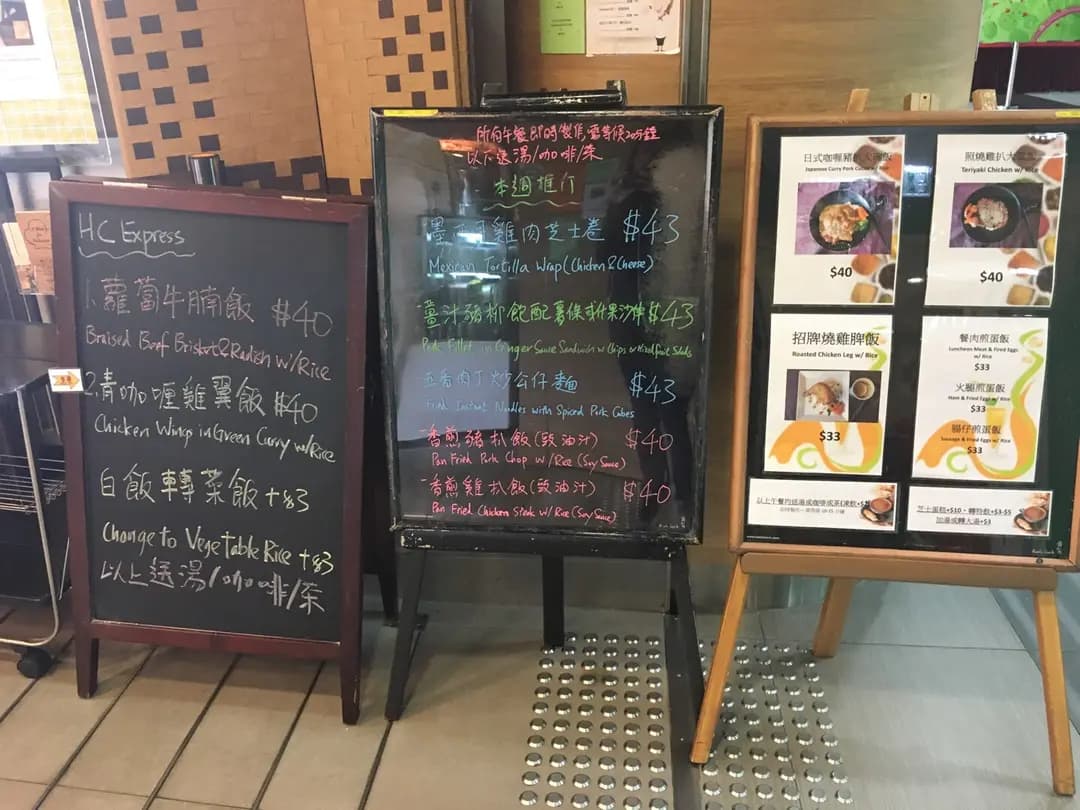 HC Express
1.蘿蔔牛腩飯 $40
Braised Beef Brisket & Radish w/Rice
2.青咖喱雞翼飯 $40
Chicken Wings in Green Curry w/Rice
白飯轉菜飯 +$3
Change to Vegetable Rice +$3
以上送湯/咖啡/茶
所有午餐即時製作,需等候20分鐘
以下送湯/咖啡/茶
本週推介
墨西哥雞肉芝士卷 $43
Mexican Tortilla Wrap (Chicken & Cheese)
薑汁豬柳飽配薯條或什果沙律 $43
Pork Fillet in Ginger Sauce Sandwich w Chips or Mixed fruit Salads
五香肉丁炒公仔麵 $43
Fried Instant Noodles with Spiced Pork Cubes
香煎豬扒飯(豉油汁) $40
Pan Fried Pork Chop w/Rice (Soy Sauce)
香煎雞扒飯(豉油汁) $40
Pan Fried Chicken Steak w/Rice (Soy Sauce)
日式咖喱豬
Japanese Curry Pork
$40
照燒雞扒
Teriyaki Chicken w/ Rice
$40
招牌燒雞脾飯
Roasted Chicken Leg w/ Rice
$33
餐肉煎蛋飯
Luncheon Meat & Fired Eggs
w/ Rice
$33
火腿煎蛋飯
Ham & Fried Eggs w/ Rice
$33
腸仔煎蛋飯
Sausage & Fried Eggs w/ Rice
$33
以上午餐均送湯或咖啡或茶(凍飲+$
芝士蛋糕+$10、轉特飲+$3-$5
加湯或轉大湯+$3